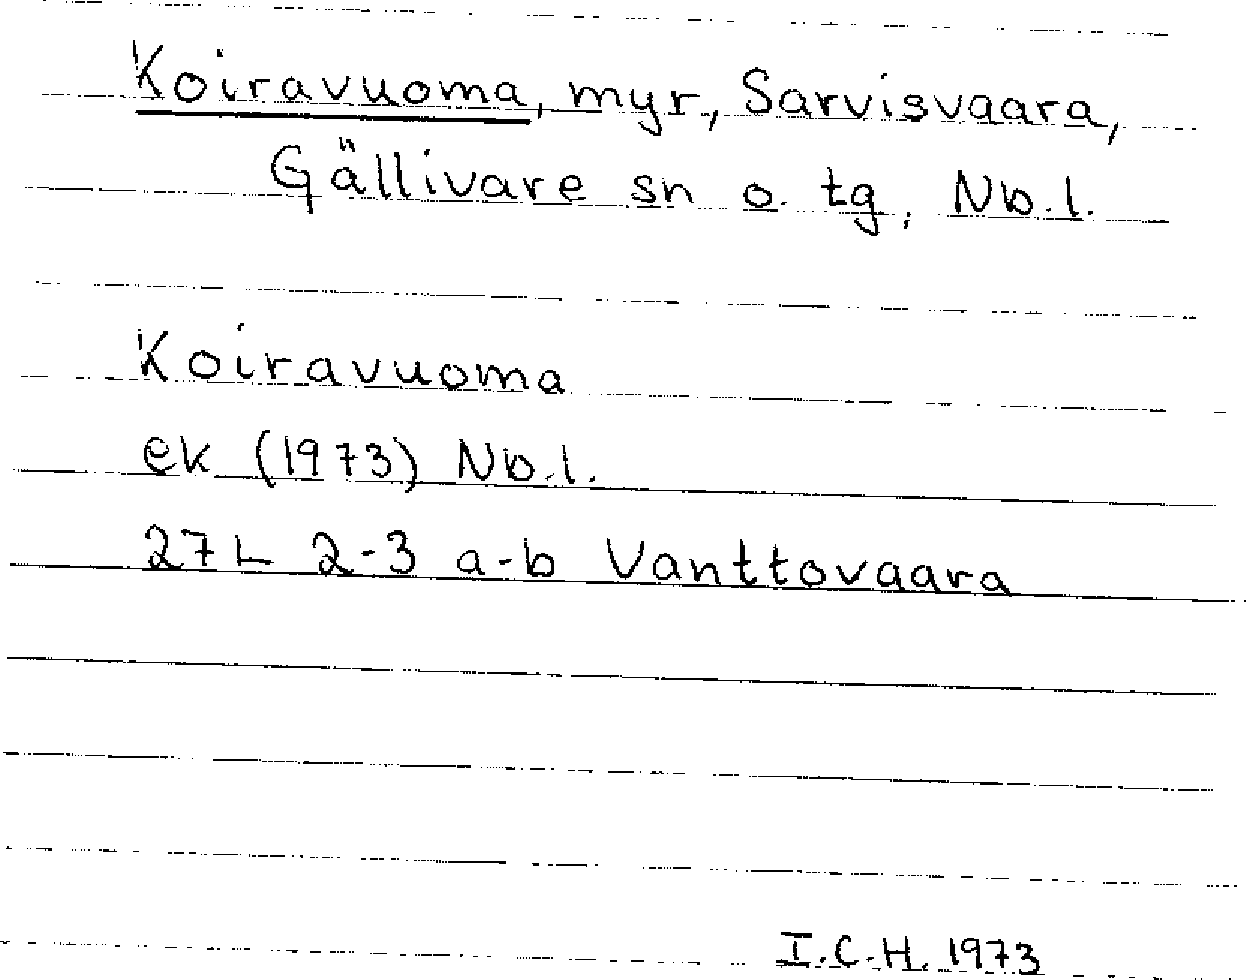 Koiravuoma, myr, Sarvisvaara,
Gällivare sn o. tg, Nb.l.
Koiravuoma
ek (1973) Nb.l.
27L 2-3 a-b Vanttovaara
I.C.H. 1973